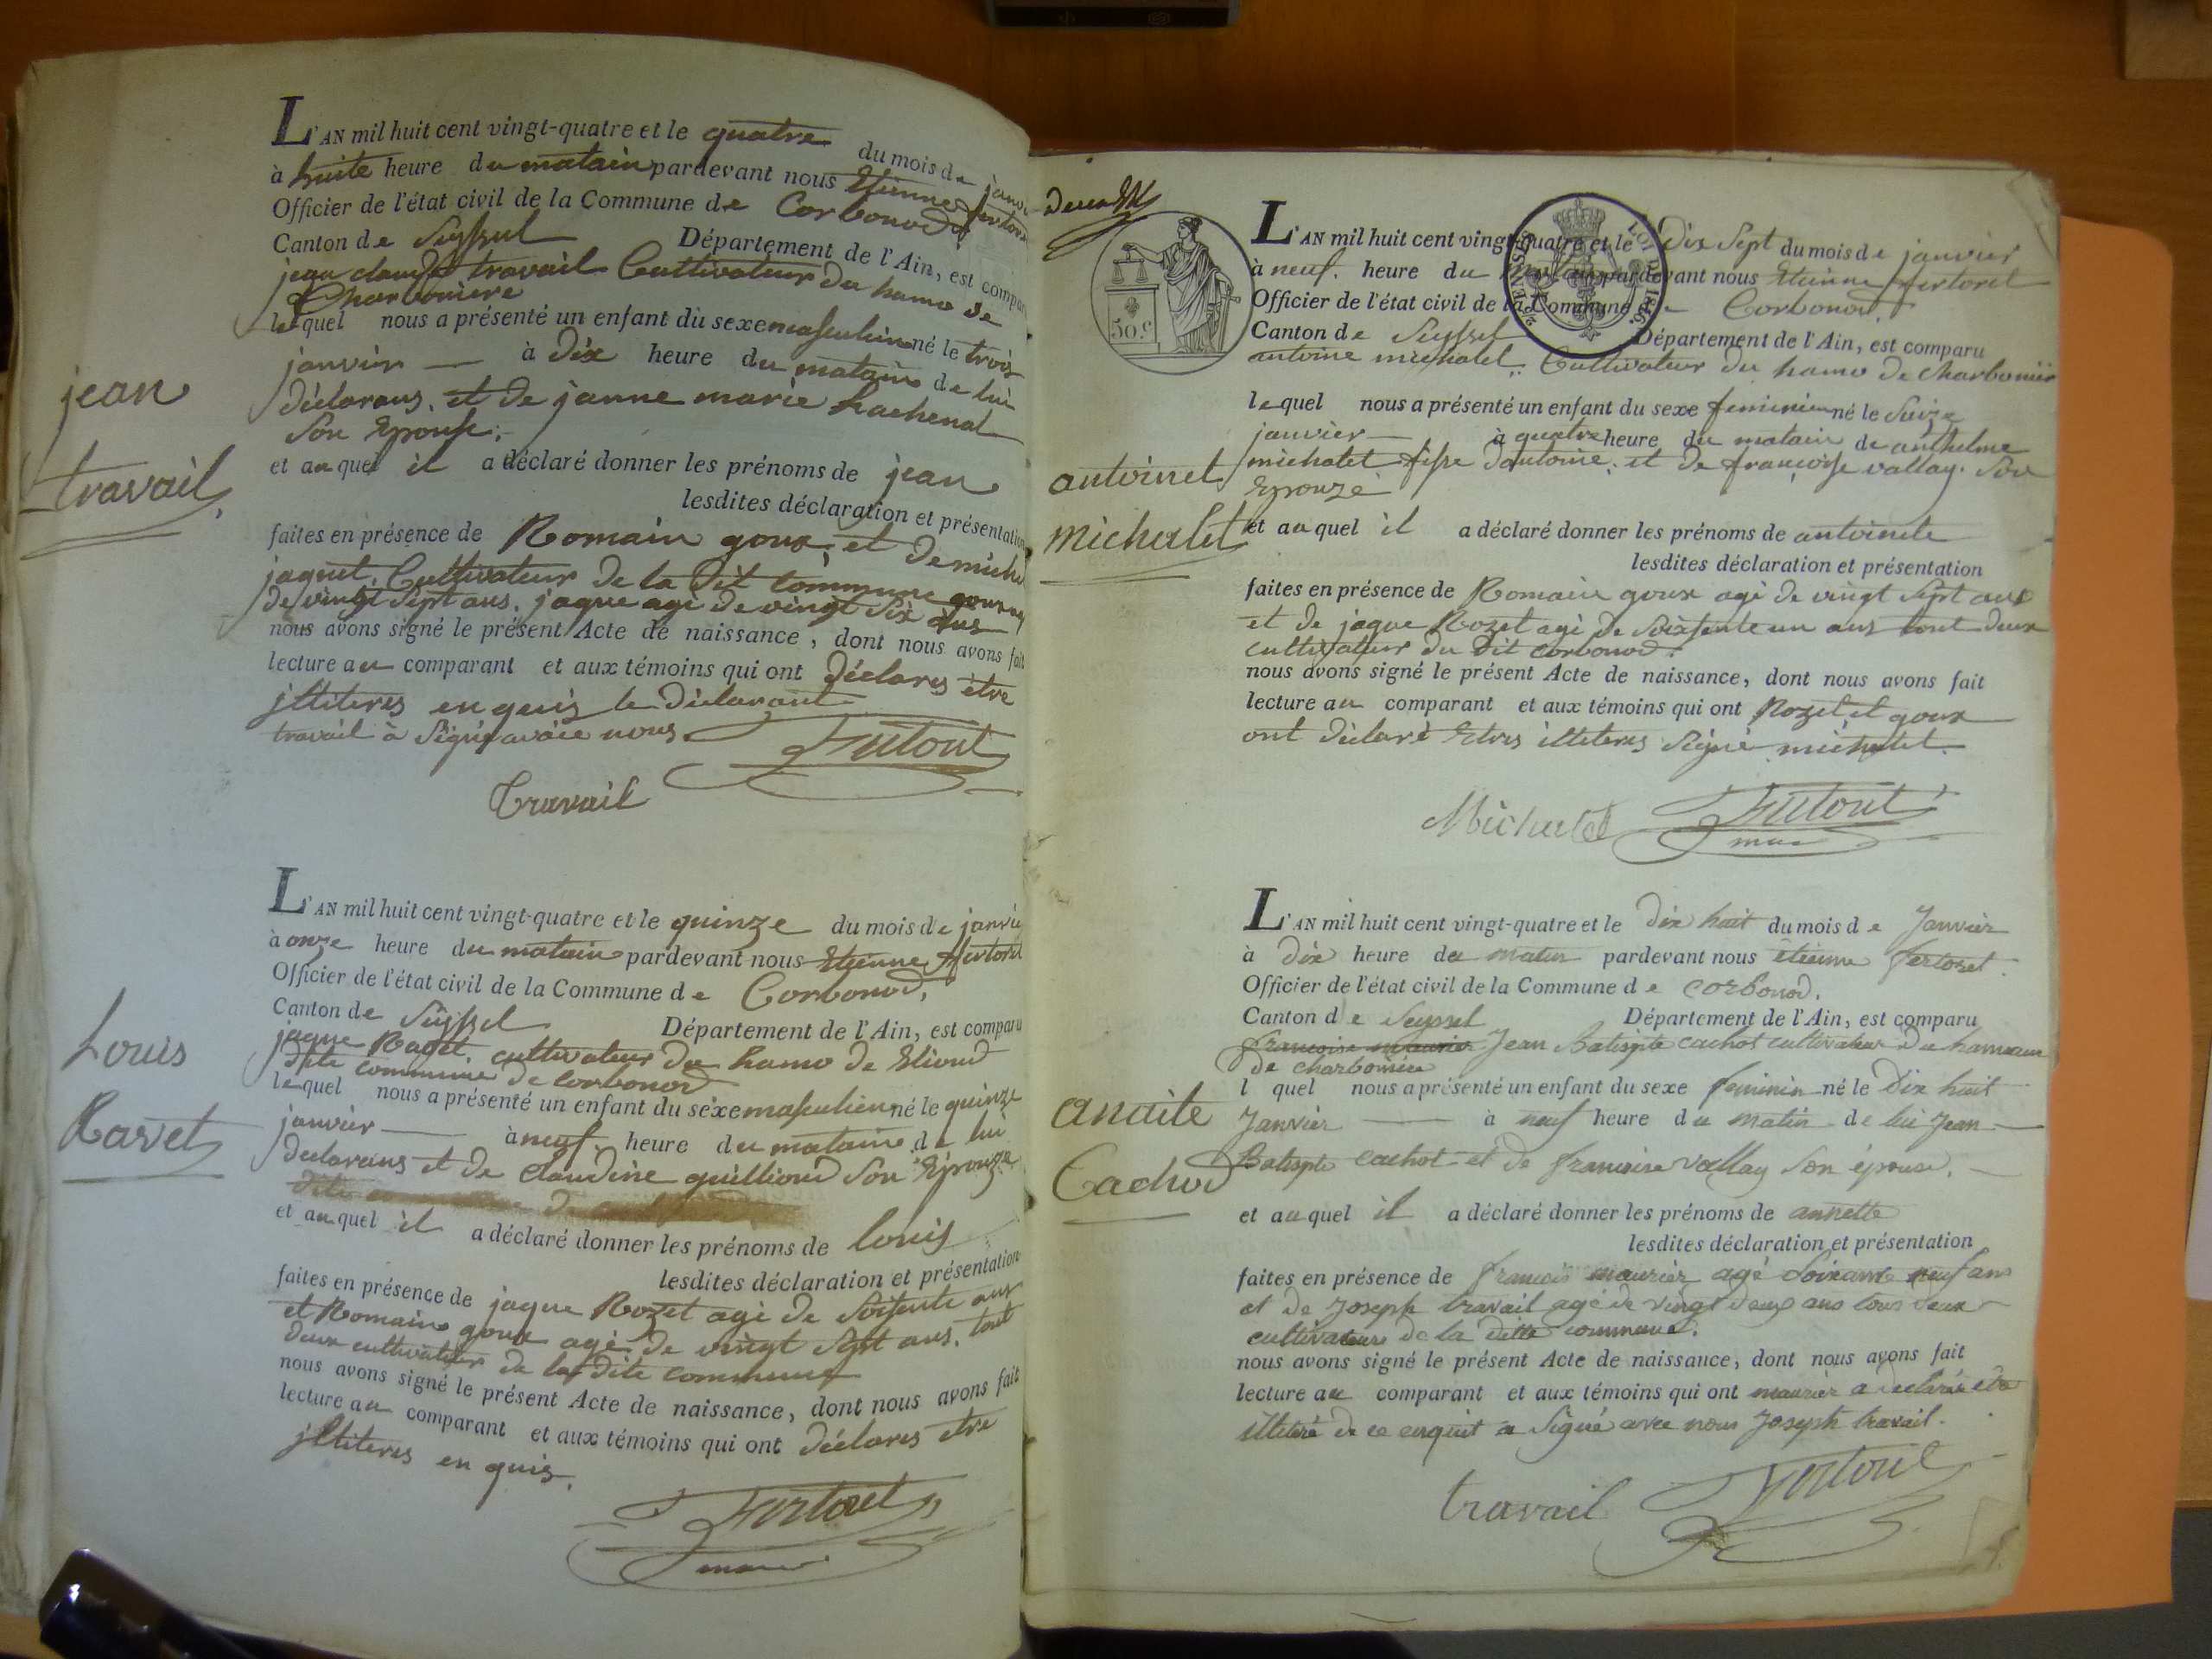 L'AN mil huit cent vingt-quatre et le quatre du mois de janv
à huite heure du matain pardevant nous Etienne fertoret
Officier de l'état civil de la Commune de Corbonod
Canton de Seyssel Département de l'Ain, est compar
jean claude travail Cultivateur du hamo de
Charboniere
lequel nous a présenté un enfant du sexe masculein né le trois
janvier à dix heure du matain de lui
déclarans, et de janne marie hachenal
Son Epouse.
et auquel il a déclaré donner les prénoms de jean
lesdites déclaration et présentation
faites en présence de Romain goux, et de miche
jaquet, Cultivateur de la dit Commune goux agé
de vingt Sept ans. jaque agé de vingt Six ans
nous avons signé le présent Acte de naissance, dont nous avons fait
lecture au comparant et aux témoins qui ont déclares être
jlliteres en quis le declarant
travail à Signé avaic nous
Fertoret
Travail
jean
travail
L'AN mil huit cent vingt-quatre et le quinze du mois de janvie
à onze heure du matain pardevant nous Etienne fertoret
Officier de l'état civil de la Commune de Corbonod,
Canton de Seyssel Département de l'Ain, est comparu
jaque Ravet, cultivateur du hamo de Eliond
dite commune de Corbonod
lequel nous a présenté un enfant du sexe masculien né le quinze
janvier à neuf heure du mataine de lui
declarans et de Claudine guilliond Son Epouze
et auquel il a déclaré donner les prénoms de louis
lesdites déclaration et présentation
faites en présence de jaque Rozet agé de Soisente ans
et Romain goux agé de vingt Sept ans. tout
deux cultivateur de la dite commune
nous avons signé le présent Acte de naissance, dont nous avons fait
lecture au comparant et aux témoins qui ont déclares etre
jlliteres en quis.
Fertoret
maire
Louis
Ravet
deux
50.c
LOI DE 1816.
L'AN mil huit cent vingt-quatre et le Dix Sept du mois de janvier
à neuf. heure du matain pardevant nous Etienne fertoret
Officier de l'état civil de la Commune de Corbonod.
Canton de Seyssel Département de l'Ain, est comparu
antoine michalet. Cultivateur du hamo de Charbonier
lequel nous a présenté un enfant du sexe feminien né le Seize
janvier à quatre heure du matain de anthelme
michalet fisse dantoine, et de françoise vallay. Son
Epouze
et auquel il a déclaré donner les prénoms de antoinete
lesdites déclaration et présentation
faites en présence de Romain goux agé de vingt Sept ans
et de jaque Rozet agé de Soixsente un ans tout deux
cultivateur du dit Corbonod.
nous avons signé le présent Acte de naissance, dont nous avons fait
lecture au comparant et aux témoins qui ont Rozet et goux
ont déclaré Etres illiteres Signé michalet.
Michalet Fertoret
maire
antoinet
michalet
L'AN mil huit cent vingt-quatre et le Dix huit du mois de Janvier
à Dix heure du matin pardevant nous étienne fertoret.
Officier de l'état civil de la Commune de Corbonod.
Canton de Seyssel Département de l'Ain, est comparu
francoise maurier Jean Batispte cachot cultivateur du hameau
de charboniere
l quel nous a présenté un enfant du sexe feminin né le Dix huit
Janvier à neuf heure du matin de lui Jean
Batispte cachot et de francoise Vallay Son épouse.
et auquel il a déclaré donner les prénoms de annette
lesdites déclaration et présentation
faites en présence de francois maurier agé Soixante neuf ans
et de Joseph travail agé de vingt deux ans tous deux
cultivateurs de la ditte commune.
nous avons signé le présent Acte de naissance, dont nous avons fait
lecture au comparant et aux témoins qui ont maurier a declaré etre
illiteré de ce enquit a Signé avec nous Joseph travail.
travail Fertoret
anaite
Cachod